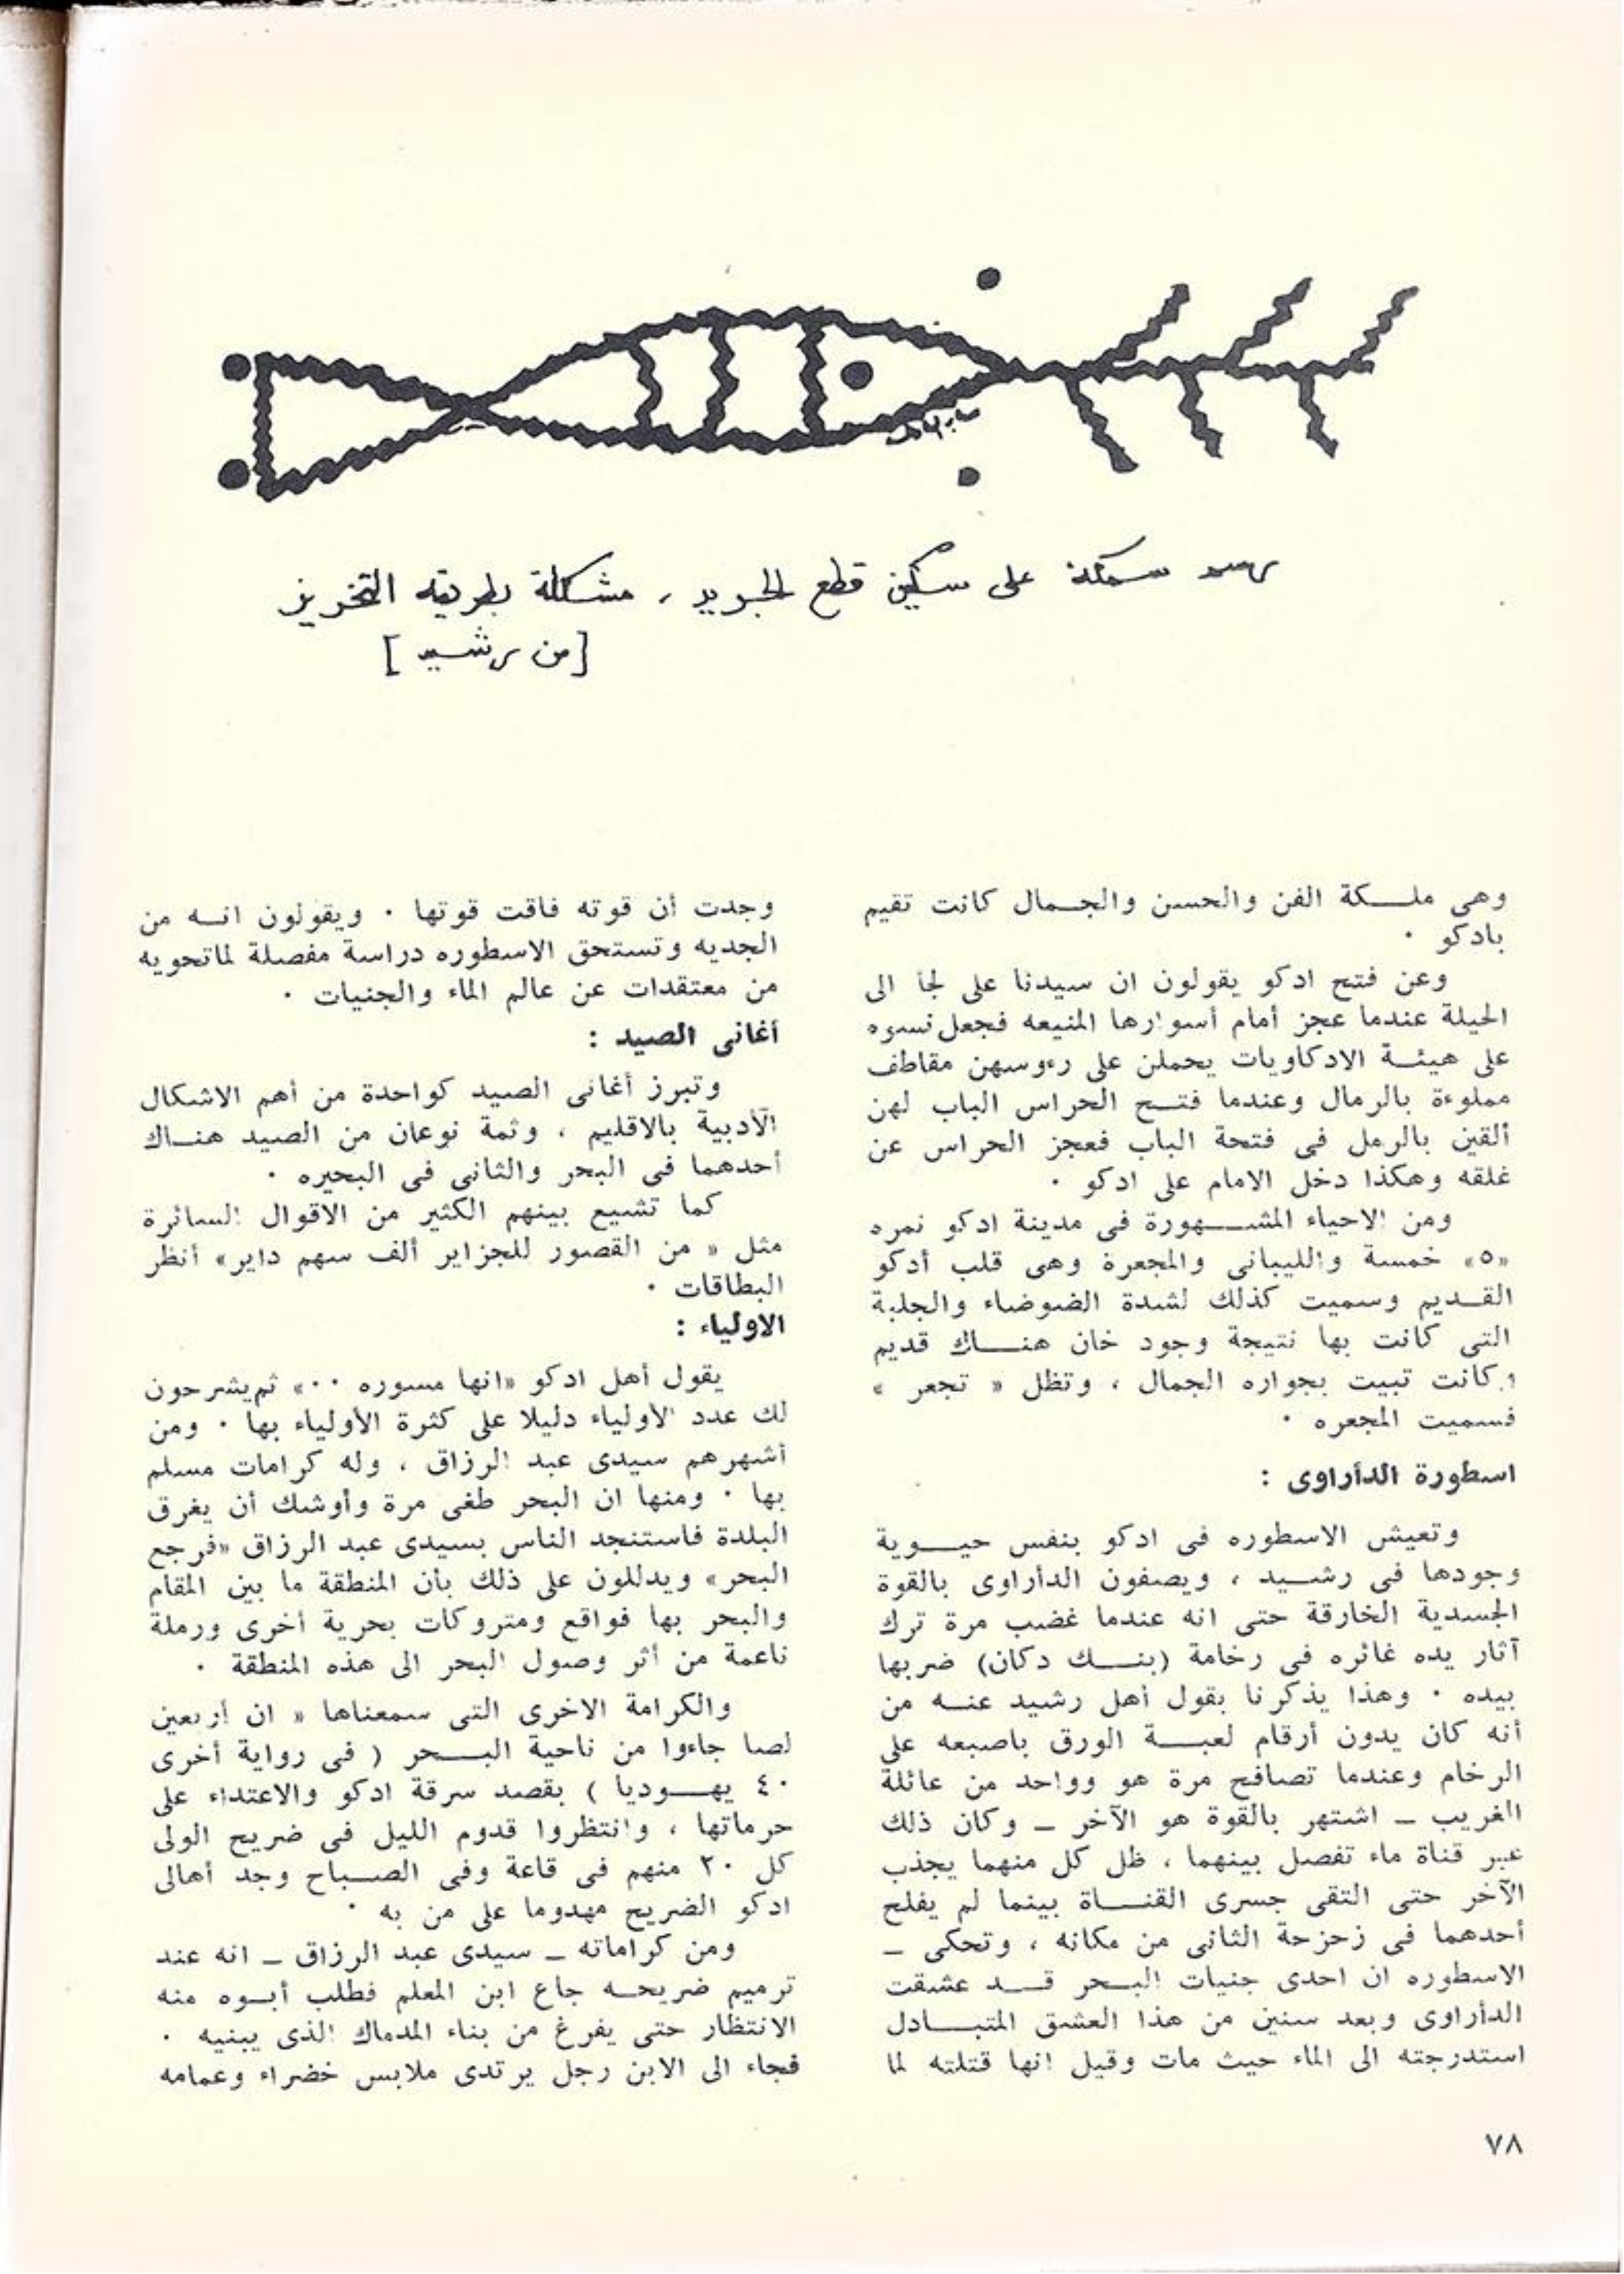 رسم سمكة على سكين قطع الجريد ، مشكلة بطريقة التخريز
[من رشيد]
وهى ملكة الفن والحسن والجمال كانت تقيم
بادكو ٠
وعن فتح ادكو يقولون ان سيدنا على لجأ الى
الحيلة عندما عجز أمام أسوارها المنيعه فجعل نسوه
على هيئة الادكاويات يحملن على رءوسهن مقاطف
مملوءة بالرمال وعندما فتح الحراس الباب لهن
ألقين بالرمل فى فتحة الباب فعجز الحراس عن
غلقه وهكذا دخل الامام على ادكو ٠
ومن الاحياء المشهورة فى مدينة ادكو نمره
«٥» خمسة والليبانى والمجعرة وهى قلب أدكو
القديم وسميت كذلك لشدة الضوضاء والجلبة
التى كانت بها نتيجة وجود خان هناك قديم
وكانت تبيت بجواره الجمال ، وتظل « تجعر »
فسميت المجعره ٠
اسطورة الدأراوى :
وتعيش الاسطوره فى ادكو بنفس حيوية
وجودها فى رشيد ، ويصفون الدأراوى بالقوة
الجسدية الخارقة حتى انه عندما غضب مرة ترك
آثار يده غائره فى رخامة (بنك دكان) ضربها
بيده ٠ وهذا يذكرنا بقول أهل رشيد عنه من
أنه كان يدون أرقام لعبة الورق باصبعه على
الرخام وعندما تصافح مرة هو وواحد من عائلة
الغريب ـ اشتهر بالقوة هو الآخر ـ وكان ذلك
عبر قناة ماء تفصل بينهما ، ظل كل منهما يجذب
الآخر حتى التقى جسرى القناة بينما لم يفلح
أحدهما فى زحزحة الثانى من مكانه ، وتحكى ـ
الاسطوره ان احدى جنيات البحر قد عشقت
الدأراوى وبعد سنين من هذا العشق المتبادل
استدرجته الى الماء حيث مات وقيل انها قتلته لما
وجدت أن قوته فاقت قوتها ٠ ويقولون انه من
الجديه وتستحق الاسطوره دراسة مفصلة لماتحويه
من معتقدات عن عالم الماء والجنيات ٠
أغانى الصيد :
وتبرز أغانى الصيد كواحدة من أهم الاشكال
الأدبية بالاقليم ، وثمة نوعان من الصيد هناك
أحدهما فى البحر والثانى فى البحيره ٠
كما تشيع بينهم الكثير من الاقوال السائرة
مثل « من القصور للجزاير ألف سهم داير» أنظر
البطاقات ٠
الاولياء :
يقول أهل ادكو «انها مسوره ٠٠» ثم يشرحون
لك عدد الأولياء دليلا على كثرة الأولياء بها ٠ ومن
أشهرهم سيدى عبد الرزاق ، وله كرامات مسلم
بها ٠ ومنها ان البحر طغى مرة وأوشك أن يغرق
البلدة فاستنجد الناس بسيدى عبد الرزاق «فرجع
البحر» ويدللون على ذلك بأن المنطقة ما بين المقام
والبحر بها فواقع ومتروكات بحرية أخرى ورملة
ناعمة من أثر وصول البحر الى هذه المنطقة ٠
والكرامة الاخرى التى سمعناها « ان أربعين
لصا جاءوا من ناحية البحر ( فى رواية أخرى
٤٠ يهوديا ) بقصد سرقة ادكو والاعتداء على
حرماتها ، وانتظروا قدوم الليل فى ضريح الولى
كل ٢٠ منهم فى قاعة وفى الصباح وجد أهالى
ادكو الضريح مهدوما على من به ٠
ومن كراماته ـ سيدى عبد الرزاق ـ انه عند
ترميم ضريحه جاع ابن المعلم فطلب أبوه منه
الانتظار حتى يفرغ من بناء المدماك الذى يبنيه ٠
فجاء الى الابن رجل يرتدى ملابس خضراء وعمامه
٧٨